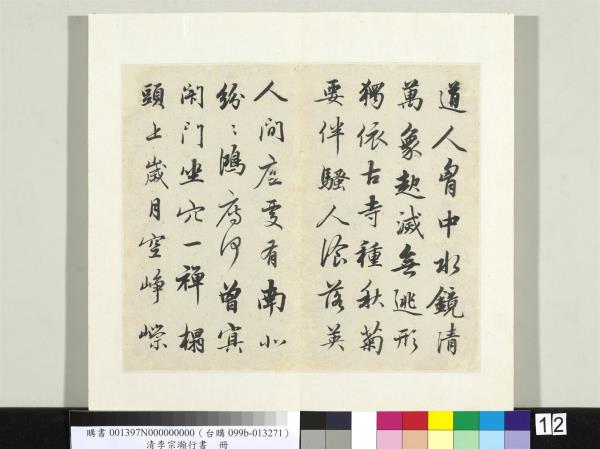 道人胷中水鏡清
萬象起滅無逃形
獨依古寺種秋菊
要伴騷人飡落英
人間底處有南北
紛〻鴻鴈何曾冥
閉門坐穴一禪榻
頭上歲月空崢嶸
購書 001397N000000000 (台購 099b-013271)
清李宗瀚行書 冊
12